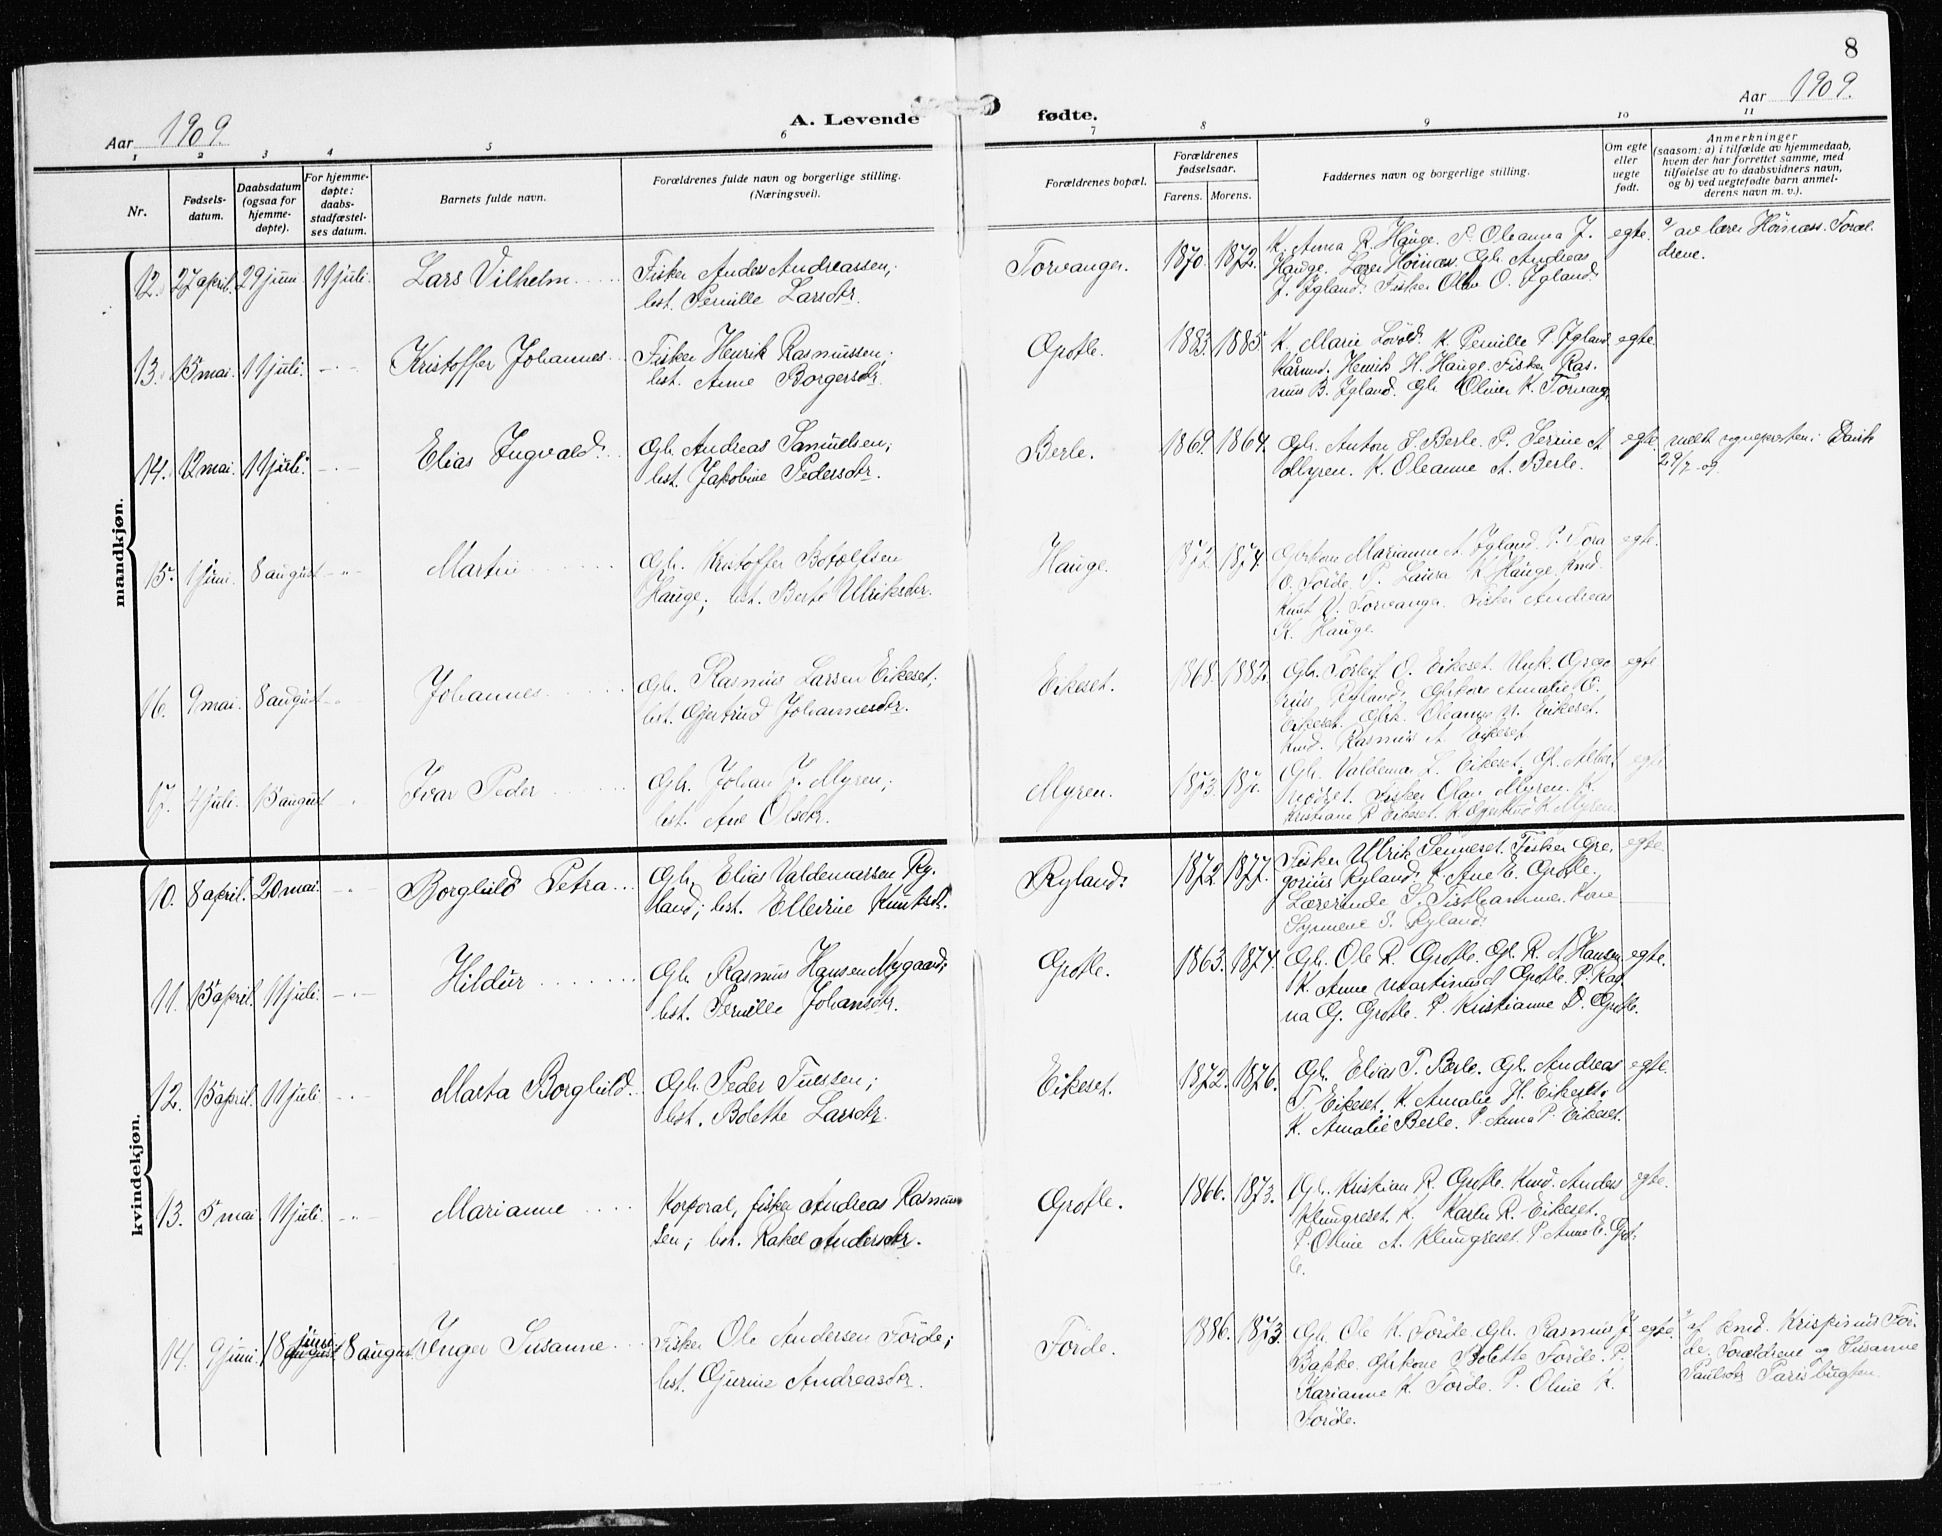 8
Aar 1909.
A. Levende
fødte.
Aar 1909.
1 2 3 4 5 6
7 8 9 10 11
Nr.
Fødsels-
datum.
Daabsdatum
(ogsaa for
hjemme-
døpte).
For hjemme-
døpte:
daabs-
stadfæstel-
ses datum.
Barnets fulde navn.
Forældrenes fulde navn og borgerlige stilling.
(Næringsvei).
Forældrenes bopæl.
Forældrenes
fødselsaar.
Farens. Morens.
Faddernes navn og borgerlige stilling.
Om egte
eller
uegte
født.
Anmerkninger
(saasom: a) i tilfælde av hjemmedaab,
hvem der har forrettet samme, med
tilføielse av to daabsvidners navn,
og b) ved uegtefødte barn anmel-
derens navn m. v.).
mandkjøn.
12. 27 april. 29 juni 11 juli. Lars Vilhelm
Fisker Anders Andreassen;
hst. Pernille Larsdtr.
Torvanger. 1870. 1872.
K. Anna R. Hauge. P. Oleanna J.
Hauge. Lærer Høinæs. Gbr. Andreas
J. Igland. Fisker Olav O. Igland.
egte.
a) av lærer Høinæs. Foræl-
drene.
13. 15 mai. 11 juli. -"- Kristoffer Johannes
Fisker Henrik Rasmussen;
hst. Anne Borgersdtr.
Grotle. 1883. 1885.
K. Marie Løvold. K. Pernille P. Igland.
Henrik H. Hauge. Fisker Ras-
mus B. Igland. Gbr. Oliver K. Torvang.
egte.
14. 12 mai. 11 juli. -"- Elias Ingvald.
Gbr. Andreas Samuelsen;
hst. Jakobine Pedersdtr.
Berle. 1869. 1864.
Gbr. Anton S. Berle. P. Serine A.
Myren. K. Oleanne A. Berle.
egte.
meldt sognepresten i Davik
29/7 09
15. 1 juni. 8 august -"- Martin
Gbr. Kristoffer Botolfsen
Hauge; hst. Berte Ulriksdtr.
Hauge. 1872. 1874.
Gbrkone Marianne A. Igland. P. Tora
O. Førde. P. Laura K. Hauge. Knd.
Knut V. Torvanger. Fisker Andreas
K. Hauge.
egte.
16. 9 mai. 8 august -"- Johannes
Gbr. Rasmus Larsen Eikeset;
hst. Gjertrud Johannesdtr.
Eikeset. 1868. 1882.
Gbr. Torleif O. Eikeset. Unk. Grego-
rius Ryland. Gbrkone Amalie O.
Eikeset. Gbrk. Oleanne N. Eikeset.
Knd. Rasmus A. Eikeset.
egte
17. 4 juli. 15 august -"- Ivar Peder
Gbr. Johan J. Myren;
hst. Ane Olsdtr.
Myren. 1873.
Gbr. Valdemar L. Eikeset. Gbr. Albert
Fisker Olav Myren. K.
Kristiane R. Eikeset. K. Gjertrud K. Myren.
egte
kvindekjøn.
10. 8 april. 20 mai. -"- Borghild Petra
Gbr. Elias Valdemarsen Ry-
land; hst. Ellevine Knutsdtr.
Ryland. 1872. 1877.
Fisker Ulrik Senneset. Fisker Gre-
gorius Ryland. K. Ane E. Grotle.
Lærerinde S. Fisthammer. Kone
Synneve S. Ryland.
egte.
11. 15 april. 11 juli. -"- Hildur
Gbr. Rasmus Hansen Nygaard;
hst. Pernille Johansdtr.
Grotle. 1863. 1874.
Gbr. Ole R. Grotle. Gbr. R. A. Hansen
K. Anne Martinusd Grotle. P. Rag-
na G. Grotle. P. Kristianne D. Grotle.
egte.
12. 15 april. 11 juli. -"- Marta Borghild.
Gbr. Peder Tuessen;
hst. Bolette Larsdtr.
Eikeset. 1872. 1876.
Gbr. Elias T. Berle. Gbr. Andreas
T. Eikeset. K. Amalie H. Eikeset.
K. Amalie Berle. P. Anna P. Eikeset.
egte.
13. 5 mai 11 juli. -"- Marianne
Korporal, fisker Andreas Rasmus-
sen; hst. Rakel Andersdtr.
Grotle. 1866. 1873.
Gbr. Kristian R. Grotle. Knd. Anders
Klungreset. K. Karln R. Eikeset.
P. Oline A. Klungreset. P. Anne E. Grot-
le.
egte.
14. 9 juni. 18 juni august 8 august. Inger Susanne
Fisker Ole Andersen Førde;
hst. Gjurine Andreasdtr.
Førde. 1886. 1873.
Gbr. Ole K. Førde. Gbr. Rasmus J.
Bakke. Gbrkone Bolette Førde. P.
Karianne K. Førde. P. Oline K.
Førde.
egte.
a) af knd. Krispinus Før-
de. Forældrene og Susanne
Paulsdtr Parisbugten.